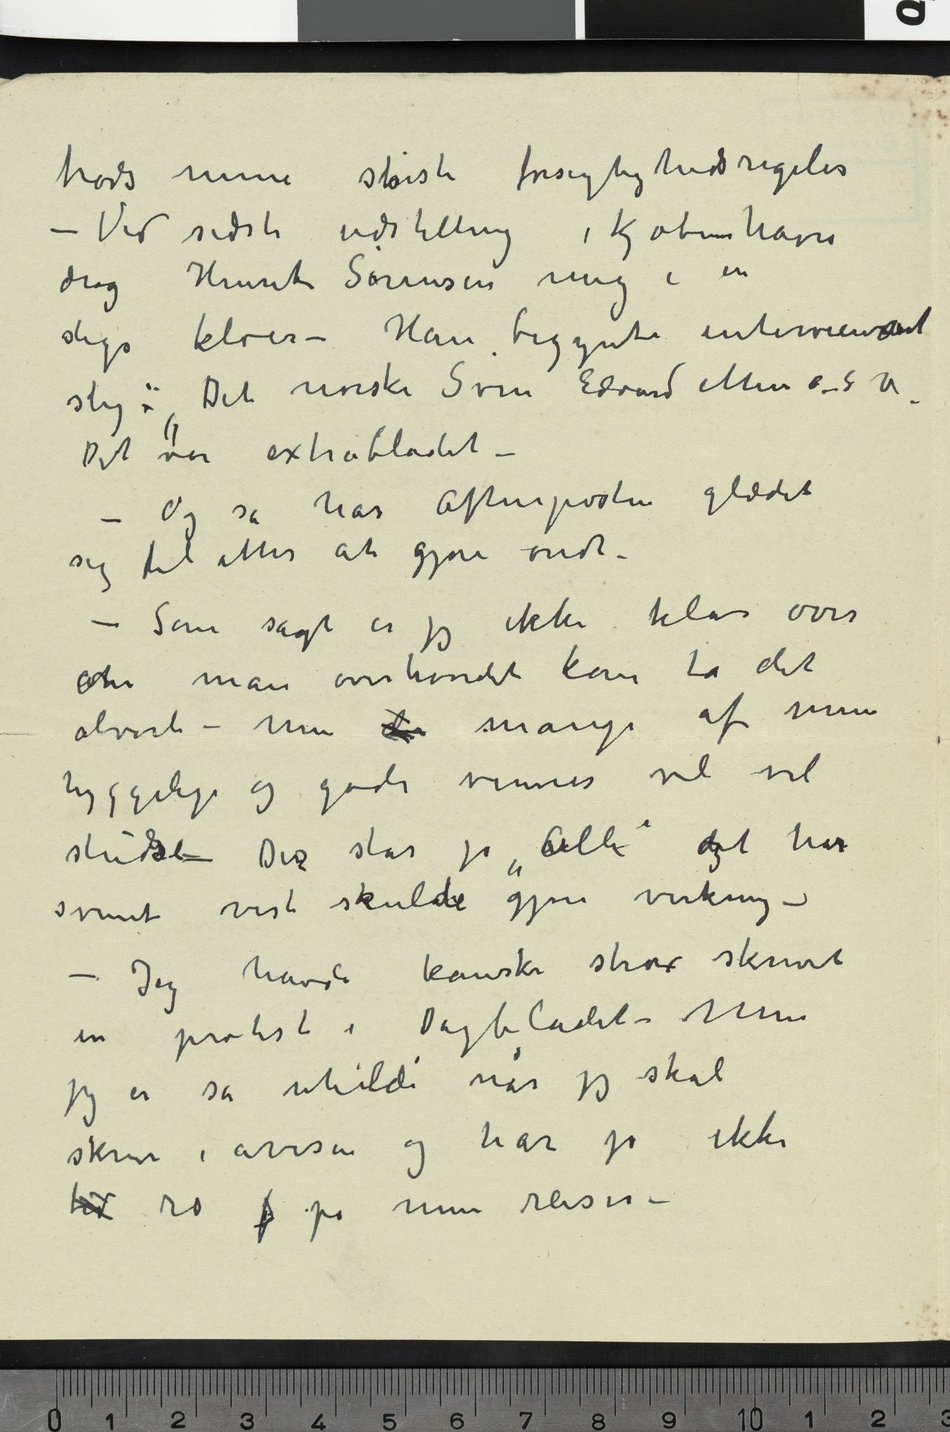 trods mine største forsigtighedsregeler
– Ved sidste udstilling i Kjøbenhavn
drog Henrik Sørensen mig i en
sligs kløer – Han begynte interviewet
slig: „Det norske Svin Edvard Munch o. s v.
Det var extrabladet –
– Og så har Aftenposten glædet
sig til atter at gjøre ondt –
– Som sagt er jeg ikke klar over
om man overhovedet kan ta det
alvorli – Men mange af mine
hyggelige og gode venner vil vel
studse – Der står jo „Alle“ det har
svinet vist skulde gjøre virkning –
– Jeg havde kanske strax skrevet
en protest i Dagbladet – Men
jeg er så uheldi når jeg skal
skrive i avisen og har jo ikke
ro på mine reiser –